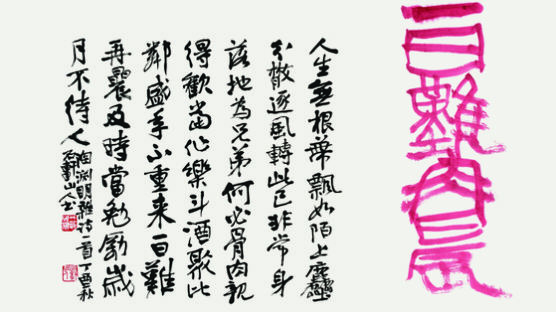 一日難再晨
人生無根蒂飄如陌上塵
分散逐風轉此已非常身
落地為兄弟何必骨肉親
得歡當作樂斗酒聚比
鄰盛年不重來一日難
再晨及時當勉勵歲
月不待人
陶淵明雜詩一首丁酉秋
山人書